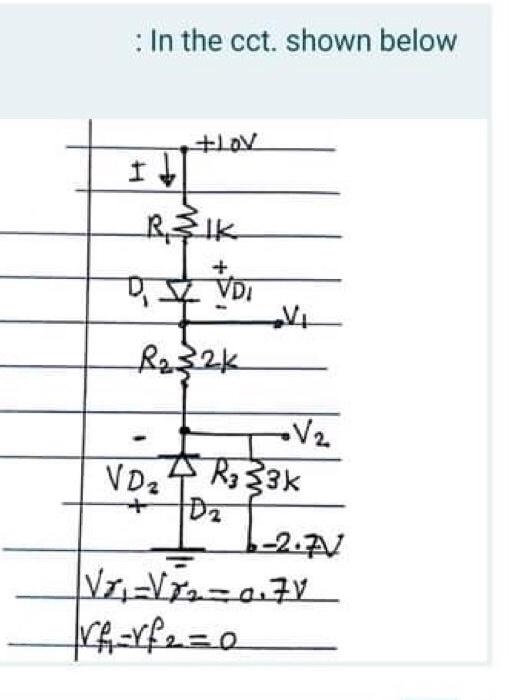 : In the cct. shown below
+10V
I ↓
R₁ 1K
+
D₁ VD1
-
V1
R2 2k
V2
-
VD2 R3 3k
+
D2
-2.7V
Vγ1=Vγ2=0.7V
rf1=rf2=0